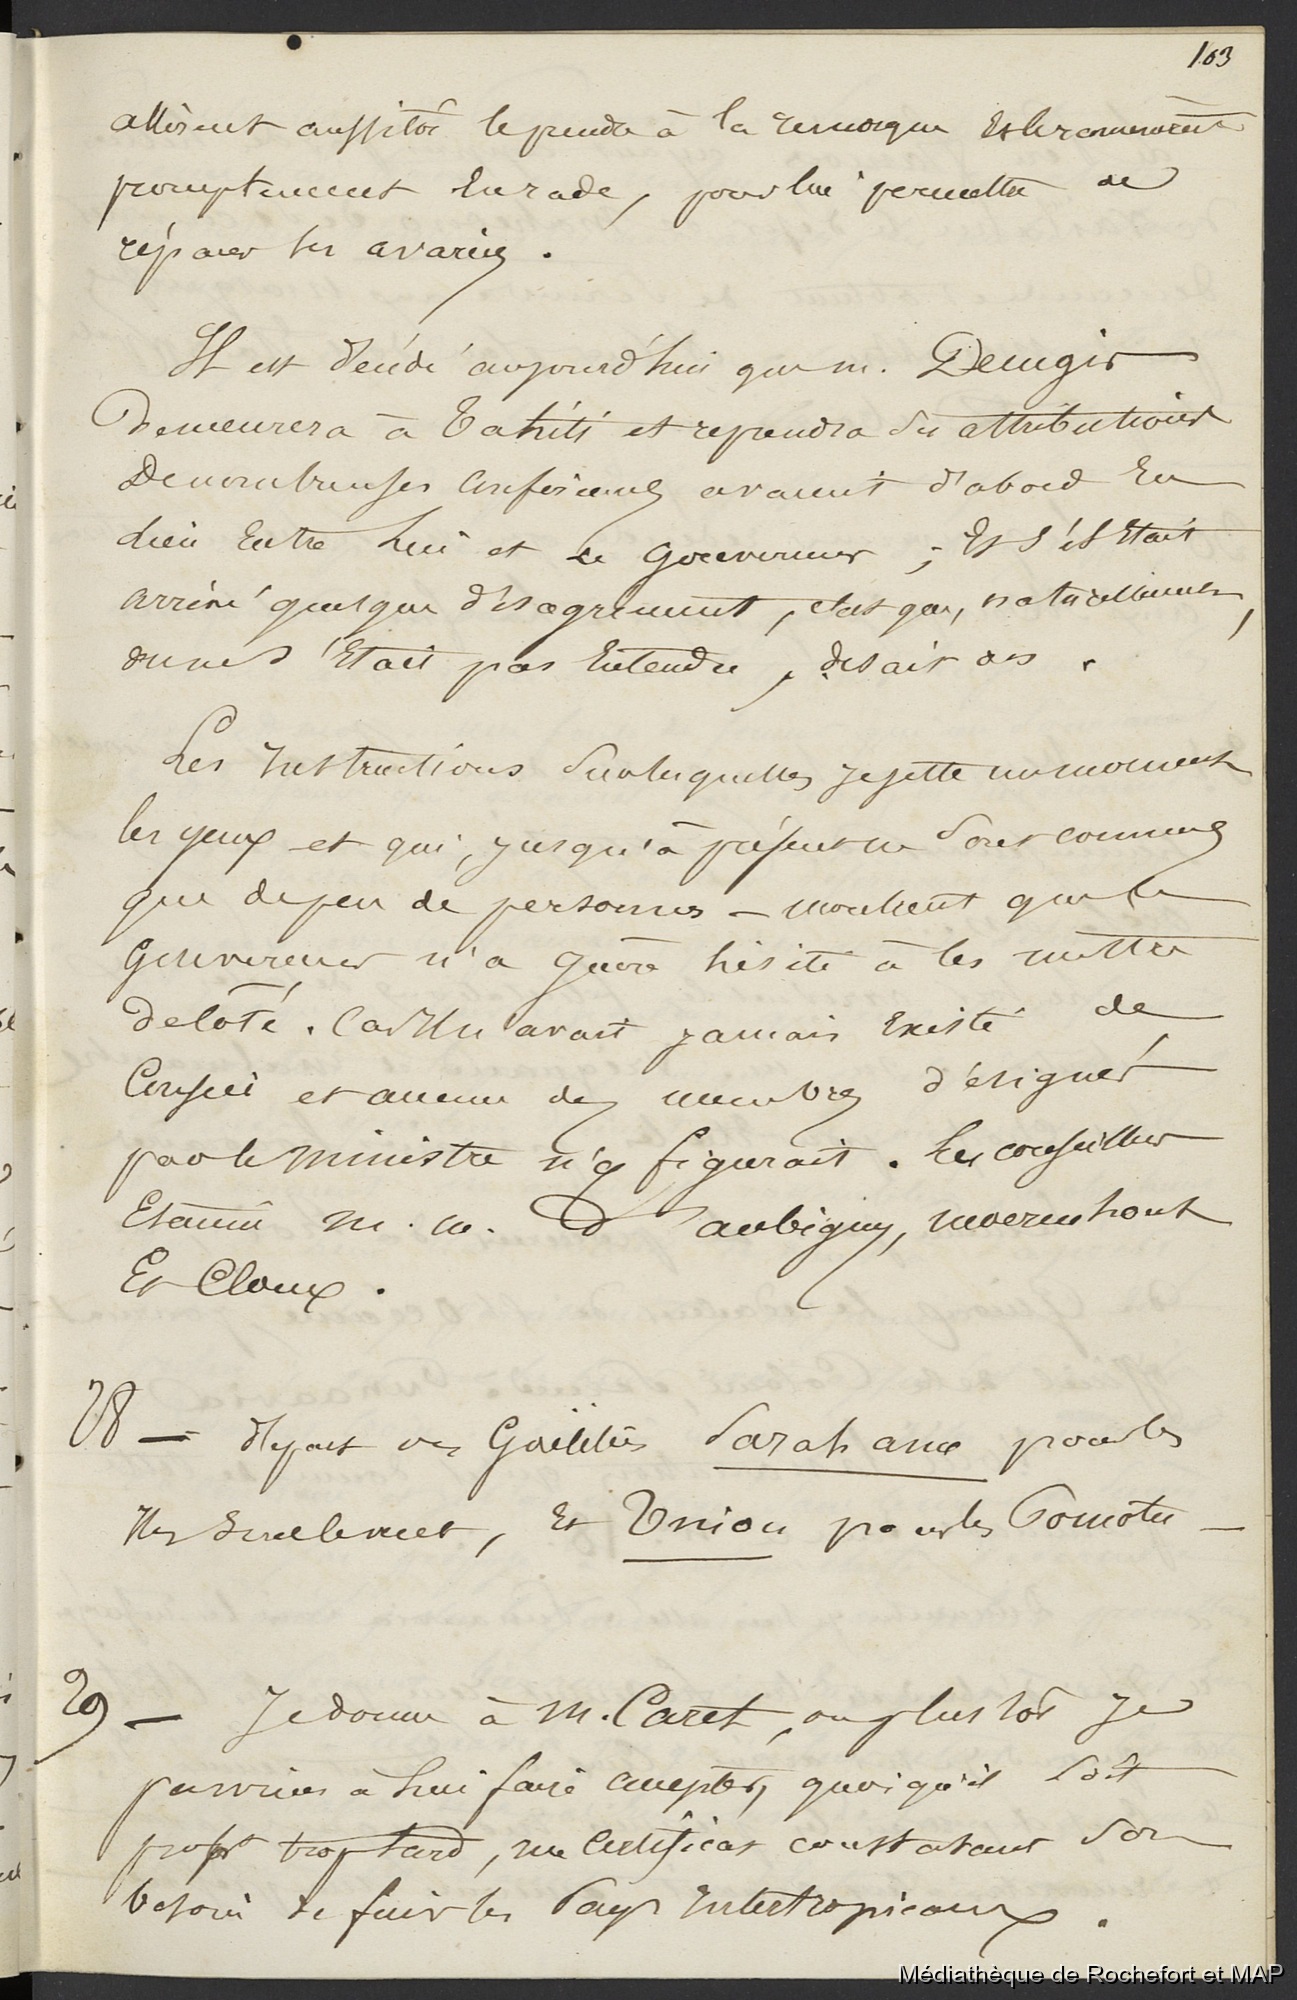 163
allèrent aussitôt le prendre à la remorque et le ramenèrent
promptement en rade, pour lui permettre de
réparer ses avaries.
Il est décidé aujourd'hui que M.
Demeurera à Tahiti et reprendra ses attributions
De nombreuses conférences avaient d'abord eu
lieu entre lui et le gouverneur ; et s'il était
arrivé quelque désagrément, c'est que, naturellement,
on ne s'était pas entendu, disait on.
Les instructions sur lesquelles je jette un moment
les yeux et qui, jusqu'à présent ne sont connues
que de peu de personnes — montrent que le
Gouverneur n'a guère hésité à les mettre
de côté. Car il n'avait jamais existé de
Conseil et aucun des membres désignés
par le ministre n'y figurait. Les conseillers
Etaient M.M. D'aubigny,
Et Cloux.
28 — départ des Goëlettes Sarah ann pour les
Iles sous le vent, et Union pour les Pomotu —
29 — Je donne à M. Caret, ou plustôt je
parviens à lui faire accepter, quoiqu'il soit
trop tard, un Certificat constatant son
besoin de fuir les Pays intertropicaux.
Médiathèque de Rochefort et MAP